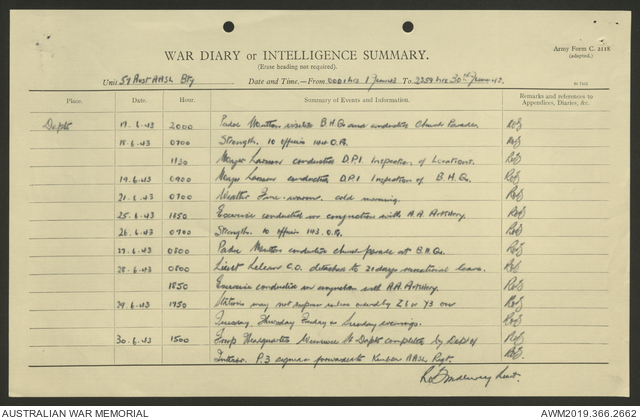 Army Form C. 2118
(adapted.)
WAR DIARY or INTELLIGENCE SUMMARY.
(Erase heading not required).
Unit 59 Aust AASL Bty Date and Time.—From 0001 hrs 1 June 43 To 2359 hrs 30th June 43.
Place. Date. Hour. Summary of Events and Information. Remarks and references to Appendices, Diaries, &c.
17.6.43 2000 Padre visited B.H.Q. and conducted Church Parade.
18.6.43 0700 Strength. 10 officers 144 O.R.
1130 Major Lawson conducted D.P.I. Inspection of Locations.
19.6.43 0900 Major Lawson conducted D.P.I Inspection of B.H.Q.
21.6.43 0700 Weather Fine warm. cold morning.
25.6.43 1850 Exercise conducted in conjunction with A.A. Artillery.
26.6.43 0700 Strength. 10 officers 143. O.R.
27.6.43 0800 Padre conducted church parade at B.H.Q.
28.6.43 0800 Lieut C.O. detached to 21 days recreational leave.
1850 Exercise conducted in conjunction with A.A. Artillery.
29.6.43 1950 Stations may not expose unless by
Tuesday, Thursday Friday or Sunday evenings.
30.6.43 1500 Group Headquarters completed by Dept of
Interior. P.3 forwarded AASL Regt.
Lieut.
AUSTRALIAN WAR MEMORIAL
AWM2019.366.2662